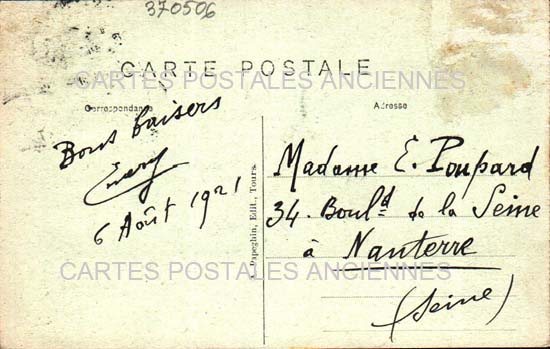 370506
CARTE POSTALE
CARTES POSTALES ANCIENNES
Correspondance
Adresse
Bons baisers
6 Août 1921
Papeghin, Edit., Tours.
Madame E. Poupard
34. Boulᵈ de la Seine
à Nanterre
(Seine)
CARTES POSTALES ANCIENNES